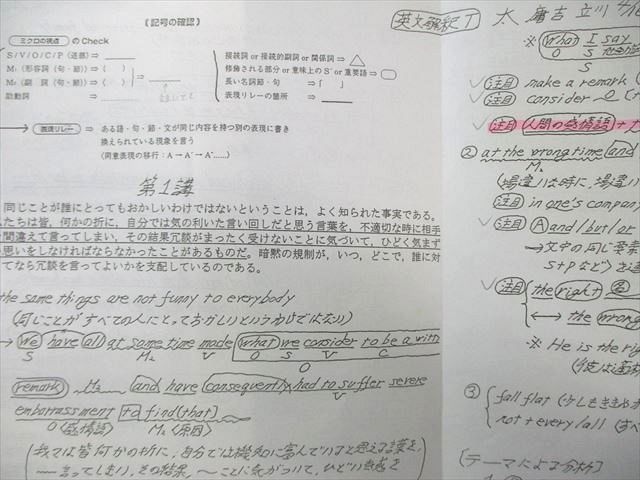 【記号の確認】
ミクロの視点 の Check
S/V/O/C/P (述語) ⇒
M₁ (形容詞 (句・節)) ⇒ ( )
M₂ (副 詞 (句・節)) ⇒ ( )
助動詞 ⇒
接続詞 or 接続的副詞 or 関係詞 ⇒ △
修飾される部分 or 意味上の S′ or 重要語 ⇒
長い名詞節・句 ⇒ 「 」
表現リレーの箇所 ⇒
表現リレー ⇒ ある語・句・節・文が同じ内容を持つ別の表現に書き
換えられている現象を言う
(同意表現の移行:A → A′ → A″……)
第1講
同じことが誰にとってもおかしいわけではないということは,よく知られた事実である。
たちは皆,何かの折に,自分では気の利いた言い回しだと思う言葉を,不適切な時に相手
間違えて言ってしまい,その結果冗談がまったく受けないことに気づいて,ひどく気まず
思いをしなければならなかったことがあるものだ。暗黙の規則が,いつ,どこで,誰に対
てなら冗談を言ってよいかを支配しているのである。
the same things are not funny to everybody
(同じことがすべての人にとっておかしいというわけではない)
→ We have (all) at some time made what we consider to be a witty
S M₂ V O S V C
remark M₂ and have consequently had to suffer severe
embarrassment to find (that)
O (感情語) M₂ (原因)
(我々は皆何かの折に,自分では機知に富んでいると思える言葉を,
〜言ってしまい,その結果,〜ことに気がついて,ひどい
英文解釈T 太 庸吉 立川
※ What I say
O S
S
注目 make a remark
注目 consider 〜O
注目 人間の感情語 +
② at the wrong time and
M₂
(場違いな時に,場違い
注目 in one's company
注目 A and / but / or
→文中の同じ要素
S+Pなど)
注目 the right
⟷ the wrong
※ He is the ri
③ fall flat
not + every / all
[テーマによる分析]